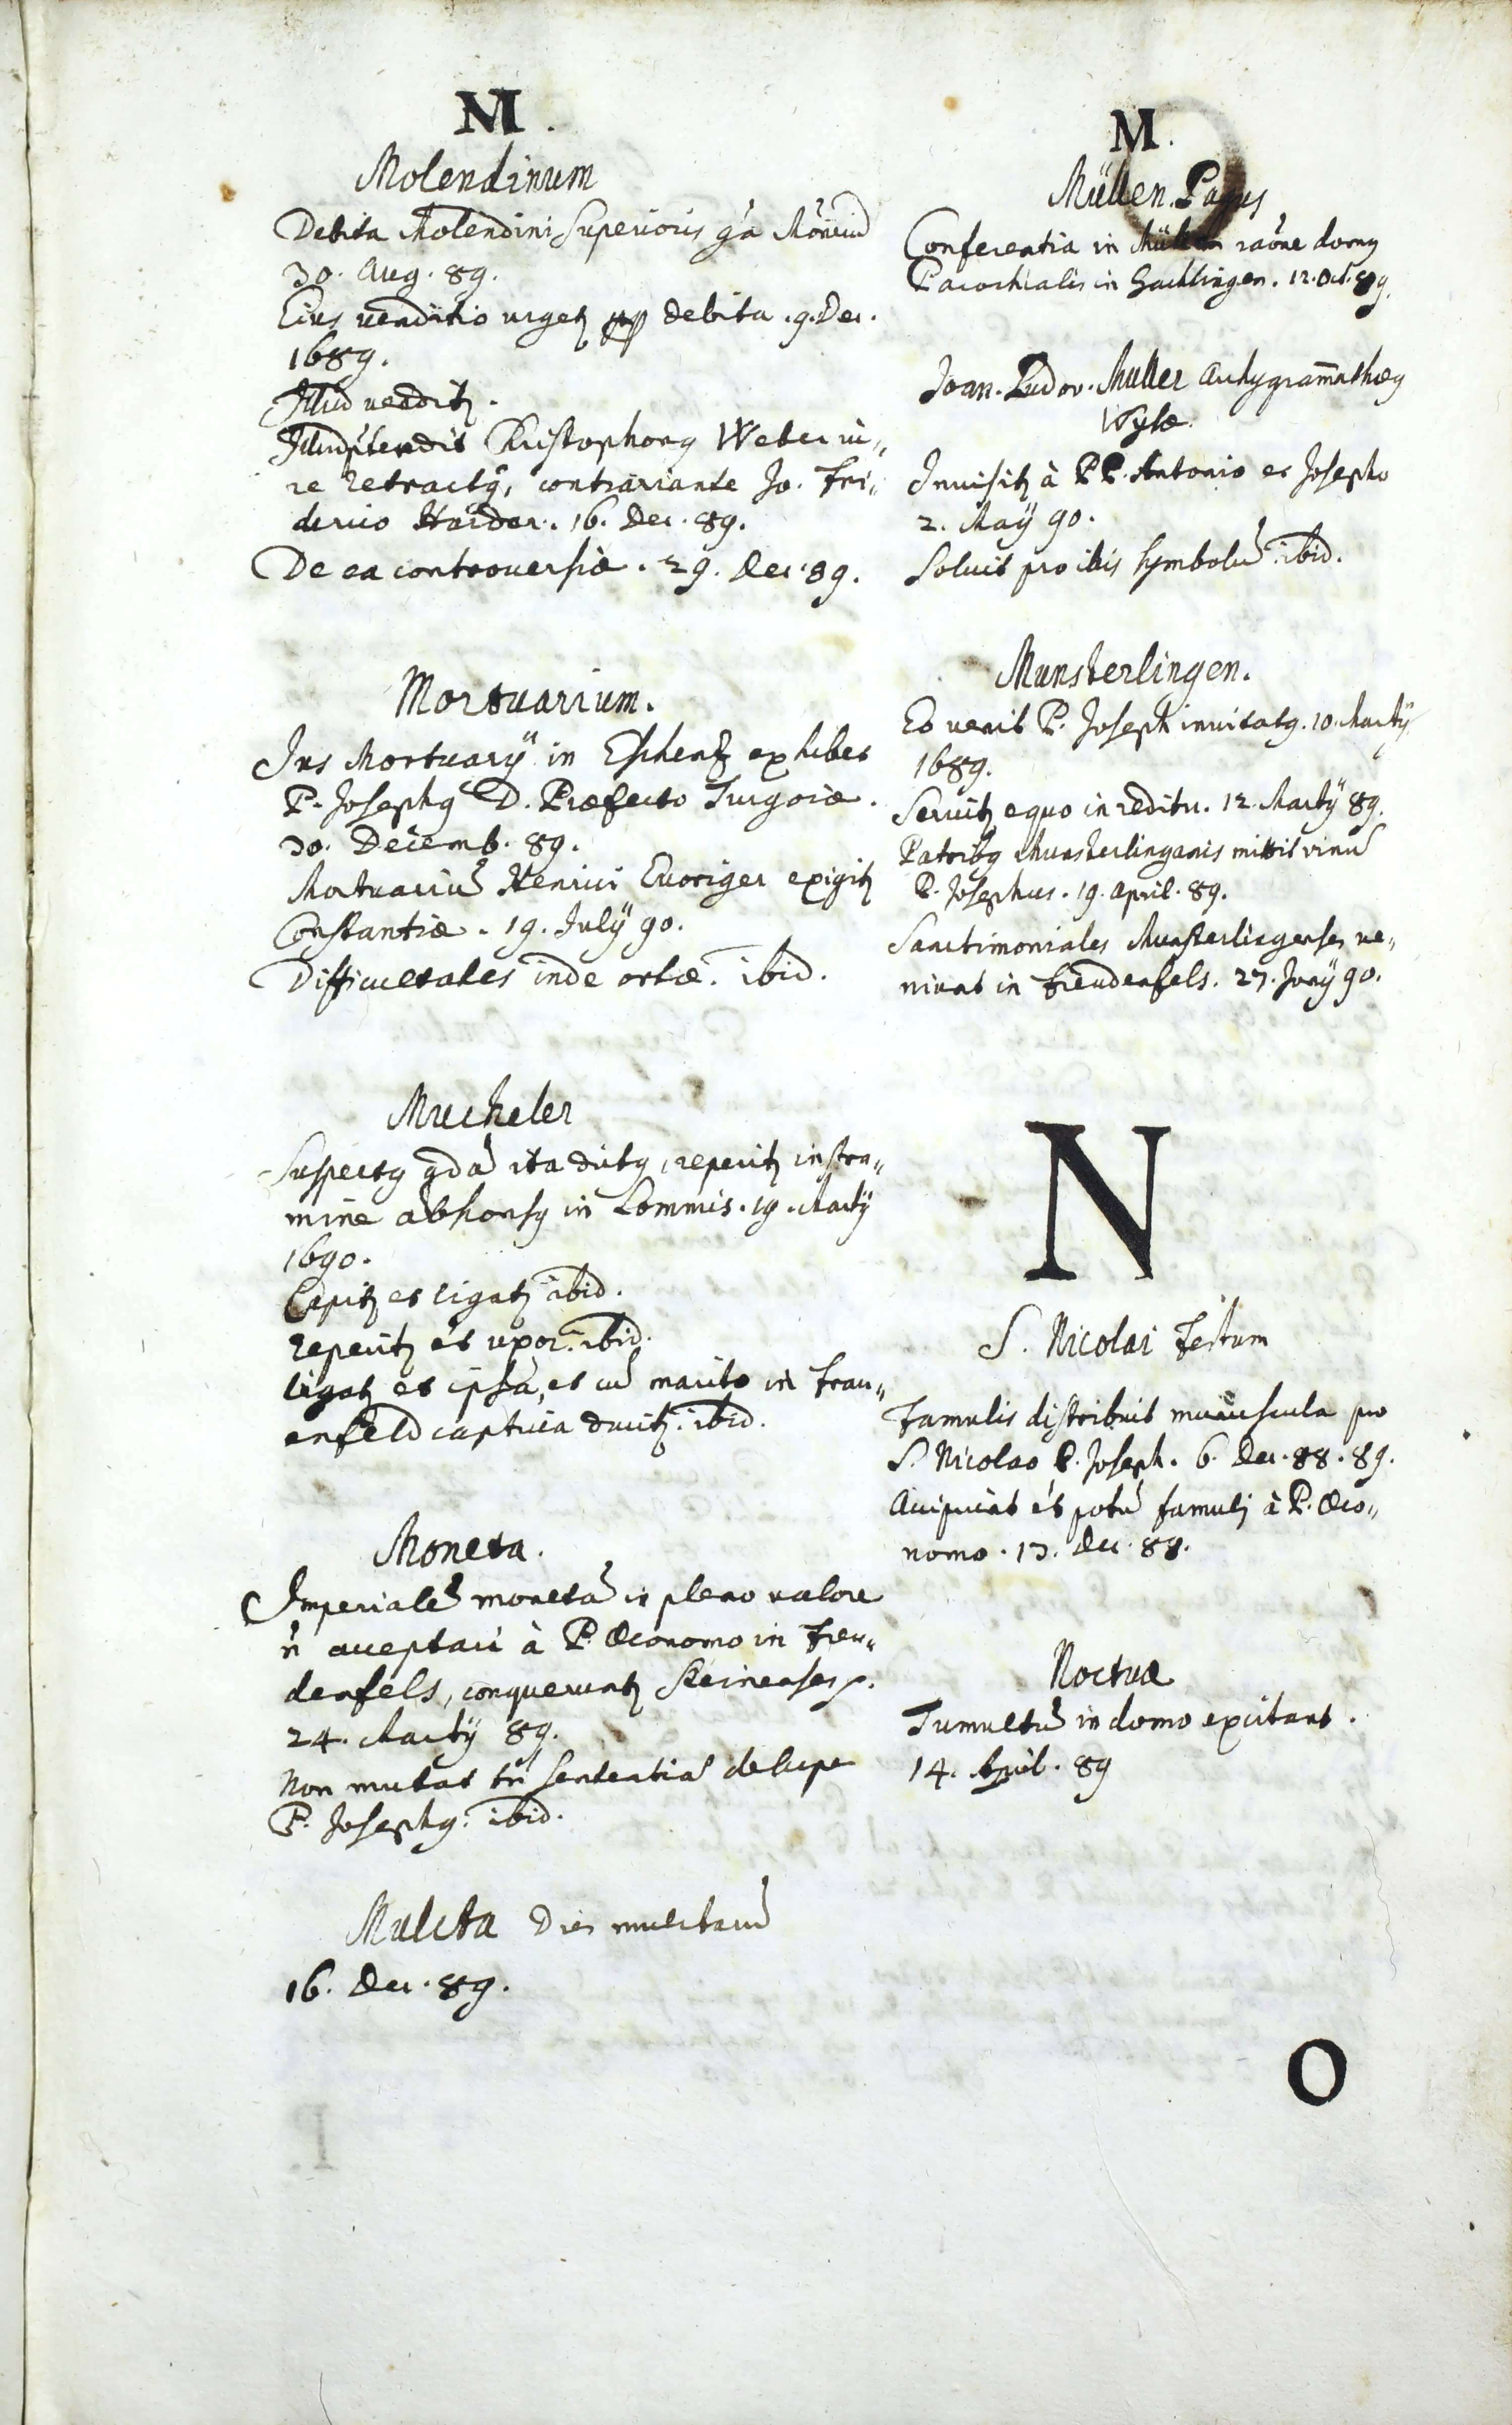 M.
Molendinum
Debita Molendini Superioris
30. Aug. 89.
Eius venditio urgetz debita. 9. Dec.
1689.
Illud venditz.
Christophorg Weber iu„
re retractg, contrariante Jo. Fri„
derico Harder. 16. Dec. 89.
De ea controversiæ. 29. Dec. 89.
Mortuarium.
Jus Mortuarÿ in Eschentz exhibet
P. Josephg D. Præfecto Turgoiæ.
30. Decemb. 89.
Mortuariũ Henrici exigitz
Constantiæ. 19. Julÿ 90.
Difficultates inde ortæ. ibid.
Mucheler
Suspectg qdã ita dictg, reperitz in stra„
mine absconsg in Commis. 19. Martÿ
1690.
Capitz et ligatz ibid.
reperitz et uxor. ibid.
ligatz et ipsa, et cũ marito in Frau„
enfeld captiva ducitz. ibid.
Moneta.
Imperialẽ monetã in pleno valore
ñ acceptari à P. Œconomo in Freu„
denfels, conqueruntz Steinenses.
24. Martÿ 89.
Non mutat tñ sententiã desuper
P. Josephg. ibid.
Mulcta Dies mulctarũ
16. Dec. 89.
M.
Müllen Pagus
Conferentia in Müllen raõne domg
Parochialis in Gachlingen. 12. Oct. 89.
Joan. Ludov. Muller Archygram̄athæg
Wylæ.
Invisitz à PP. Antonio et Josepho
2. Maÿ 90.
Solvit pro illis symbolũ. ibid.
Munsterlingen.
Eo venit P. Joseph invitatg. 10. Martÿ
1689.
Servitz equo in reditu. 12. Martÿ 89.
Patribg Munsterlinganis mittit vinũ
P. Josephus. 19. April. 89.
Sanctimoniales Munsterlingenses ve„
niunt in Freudenfels. 27. Junÿ 90.
N
S. Nicolai Festum
Famulis distribuit munuscula pro
S. Nicolao P. Joseph. 6. Dec. 88. 89.
Accipiunt et potũ famulj à P. Œco„
nomo. 13. Dec. 88.
Noctuæ
Tumultũ in domo excitant.
14. April. 89
O